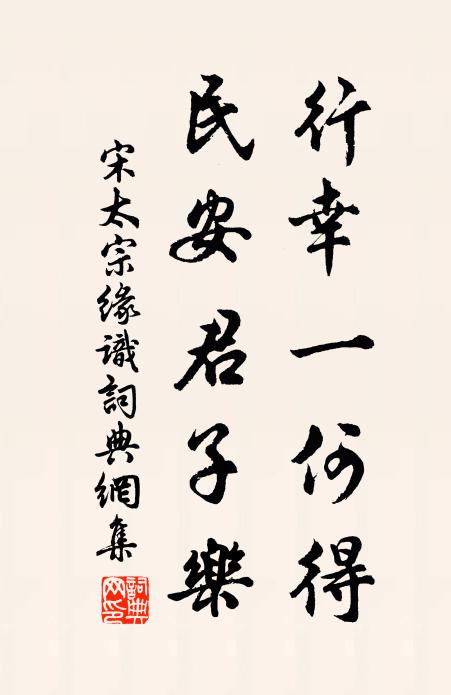 行幸一何得
民安君子樂
宋太宗緣識詞典網集
詞典网印